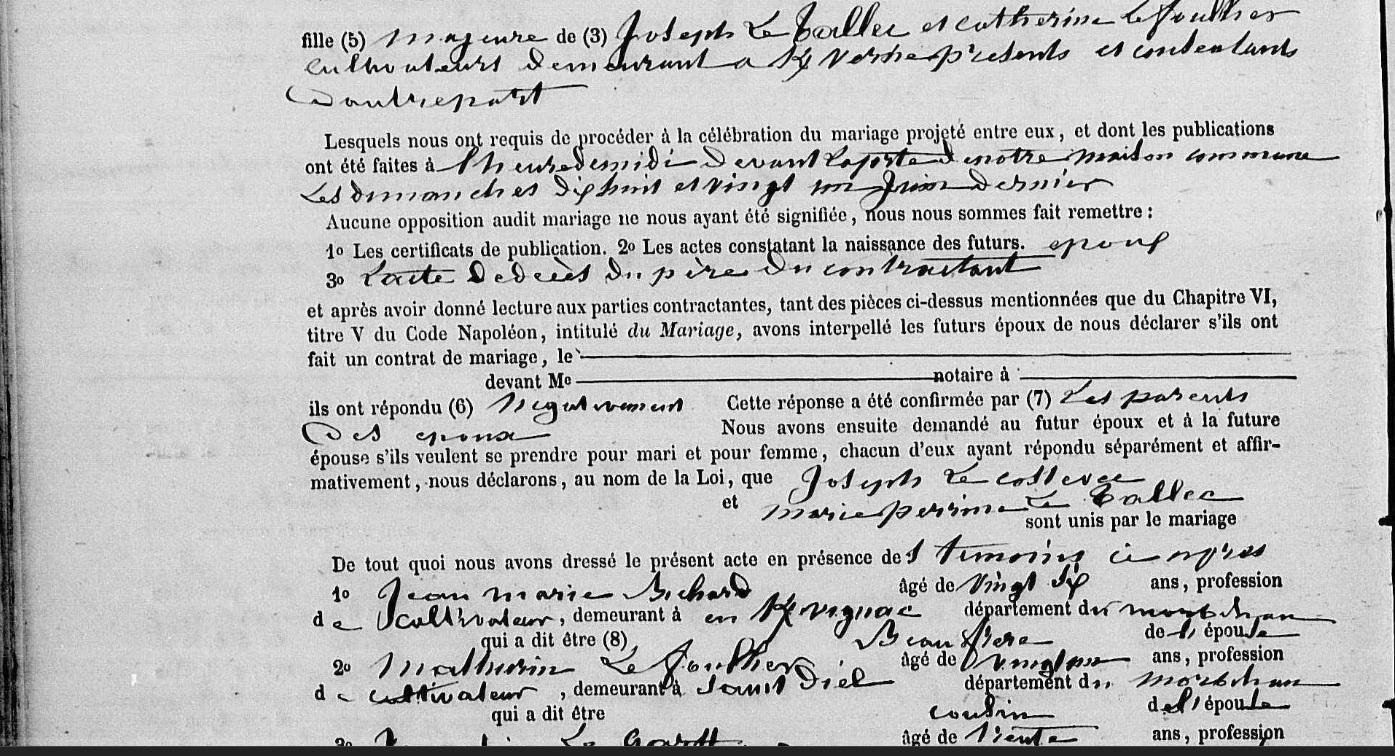 fille (5) majeure de (3) Joseph Le Tallec et catherine le Joulher
cultivateurs demeurant a K/ verhe présents et consentants
D'autrepart
Lesquels nous ont requis de procéder à la célébration du mariage projeté entre eux, et dont les publications
ont été faites à l'heure de midi Devant la porte de notre maison commune
Les dimanches dix huit et vingt un Juin Dernier
Aucune opposition audit mariage ne nous ayant été signifiée, nous nous sommes fait remettre :
1o Les certificats de publication. 2o Les actes constatant la naissance des futurs. epoux
3o L'acte De decès Du père Du contractant
et après avoir donné lecture aux parties contractantes, tant des pièces ci-dessus mentionnées que du Chapitre VI,
titre V du Code Napoléon, intitulé du Mariage, avons interpellé les futurs époux de nous déclarer s'ils ont
fait un contrat de mariage, le
devant Me notaire à
ils ont répondu (6) negativement Cette réponse a été confirmée par (7) Les parents
Des epoux Nous avons ensuite demandé au futur époux et à la future
épouse s'ils veulent se prendre pour mari et pour femme, chacun d'eux ayant répondu séparément et affir-
mativement, nous déclarons, au nom de la Loi, que Joseph Le
et marie perrine Le Tallec
sont unis par le mariage
De tout quoi nous avons dressé le présent acte en présence des temoins ci après
1o Jean marie Richard âgé de vingt six ans, profession
de cultivateur, demeurant à en K/vignac département du morbihan
qui a dit être (8) Beau frere de l'épouse
2o Mathurin Le Joulher âgé de ans, profession
de cultivateur, demeurant à département du morbihan
qui a dit être cousin de l'épouse
3o âgé de trente ans, profession